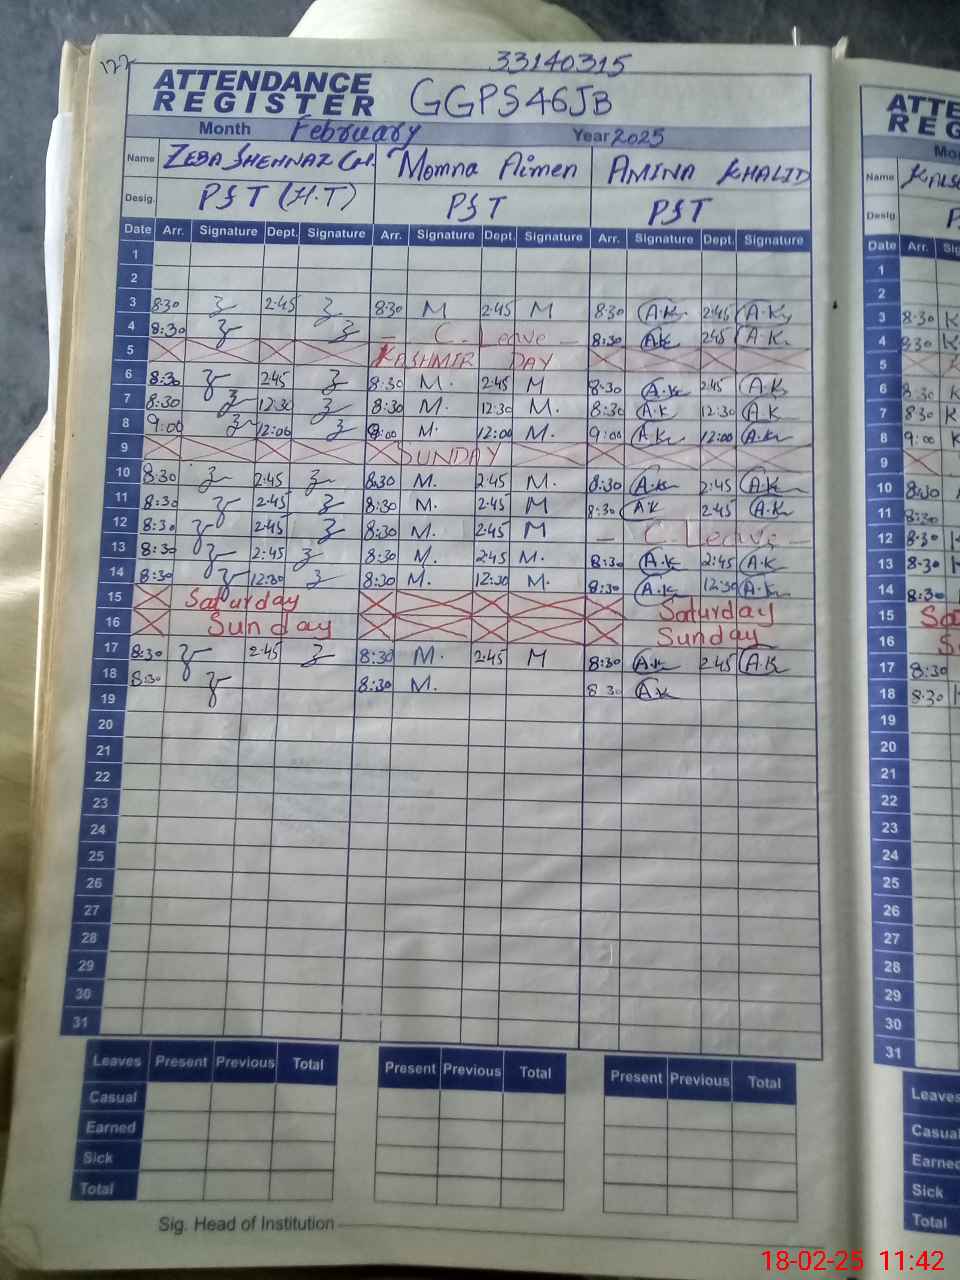 177
33140315
ATTENDANCE REGISTER GGPS46JB
Month February Year 2025
Name ZEBA SHEHNAZ CH. Momna Aimen AMINA KHALID
Desig. PST (H.T) PST PST
Date Arr. Signature Dept. Signature Arr. Signature Dept. Signature Arr. Signature Dept. Signature
1
2
3 8:30 2:45 8:30 M 2:45 M 8:30 A.K 2:45 A.K
4 8:30 C. Leave - 8:30 AK 2:45 A.K
5 KASHMIR DAY
6 8:30 2:45 8:30 M. 2:45 M 8:30 A.K 2:45 A.K
7 8:30 12:30 8:30 M. 12:30 M. 8:30 A.K 12:30 A.K
8 9:00 12:00 9:00 M. 12:00 M. 9:00 A.K 12:00 A.K
9 SUNDAY
10 8:30 2:45 8:30 M. 2:45 M. 8:30 A.K 2:45 A.K
11 8:30 2:45 8:30 M. 2:45 M 8:30 AK 2:45 A.K
12 8:30 2:45 8:30 M. 2:45 M - C. Leave -
13 8:30 2:45 8:30 M. 2:45 M. 8:30 A.K 2:45 A.K
14 8:30 12:30 8:30 M. 12:30 M. 8:30 A.K 12:30 A.K
15 Saturday Saturday
16 Sunday Sunday
17 8:30 2:45 8:30 M. 2:45 M 8:30 A.K 2:45 A.K
18 8:30 8:30 M. 8:30 A.K
19
20
21
22
23
24
25
26
27
28
29
30
31
Leaves Present Previous Total Present Previous Total Present Previous Total
Casual
Earned
Sick
Total
Sig. Head of Institution
Name
Desig.
Date Arr.
1
2
3 8:30 K
4 8:30 K
5
6 8:30 K
7 8:30 K
8 9:00 K
9
10 8:30
11 8:30
12 8:30
13 8:30
14 8:30
15
16
17 8:30
18 8:30
19
20
21
22
23
24
25
26
27
28
29
30
31
Leaves
Casual
Earned
Sick
Total
18-02-25 11:42